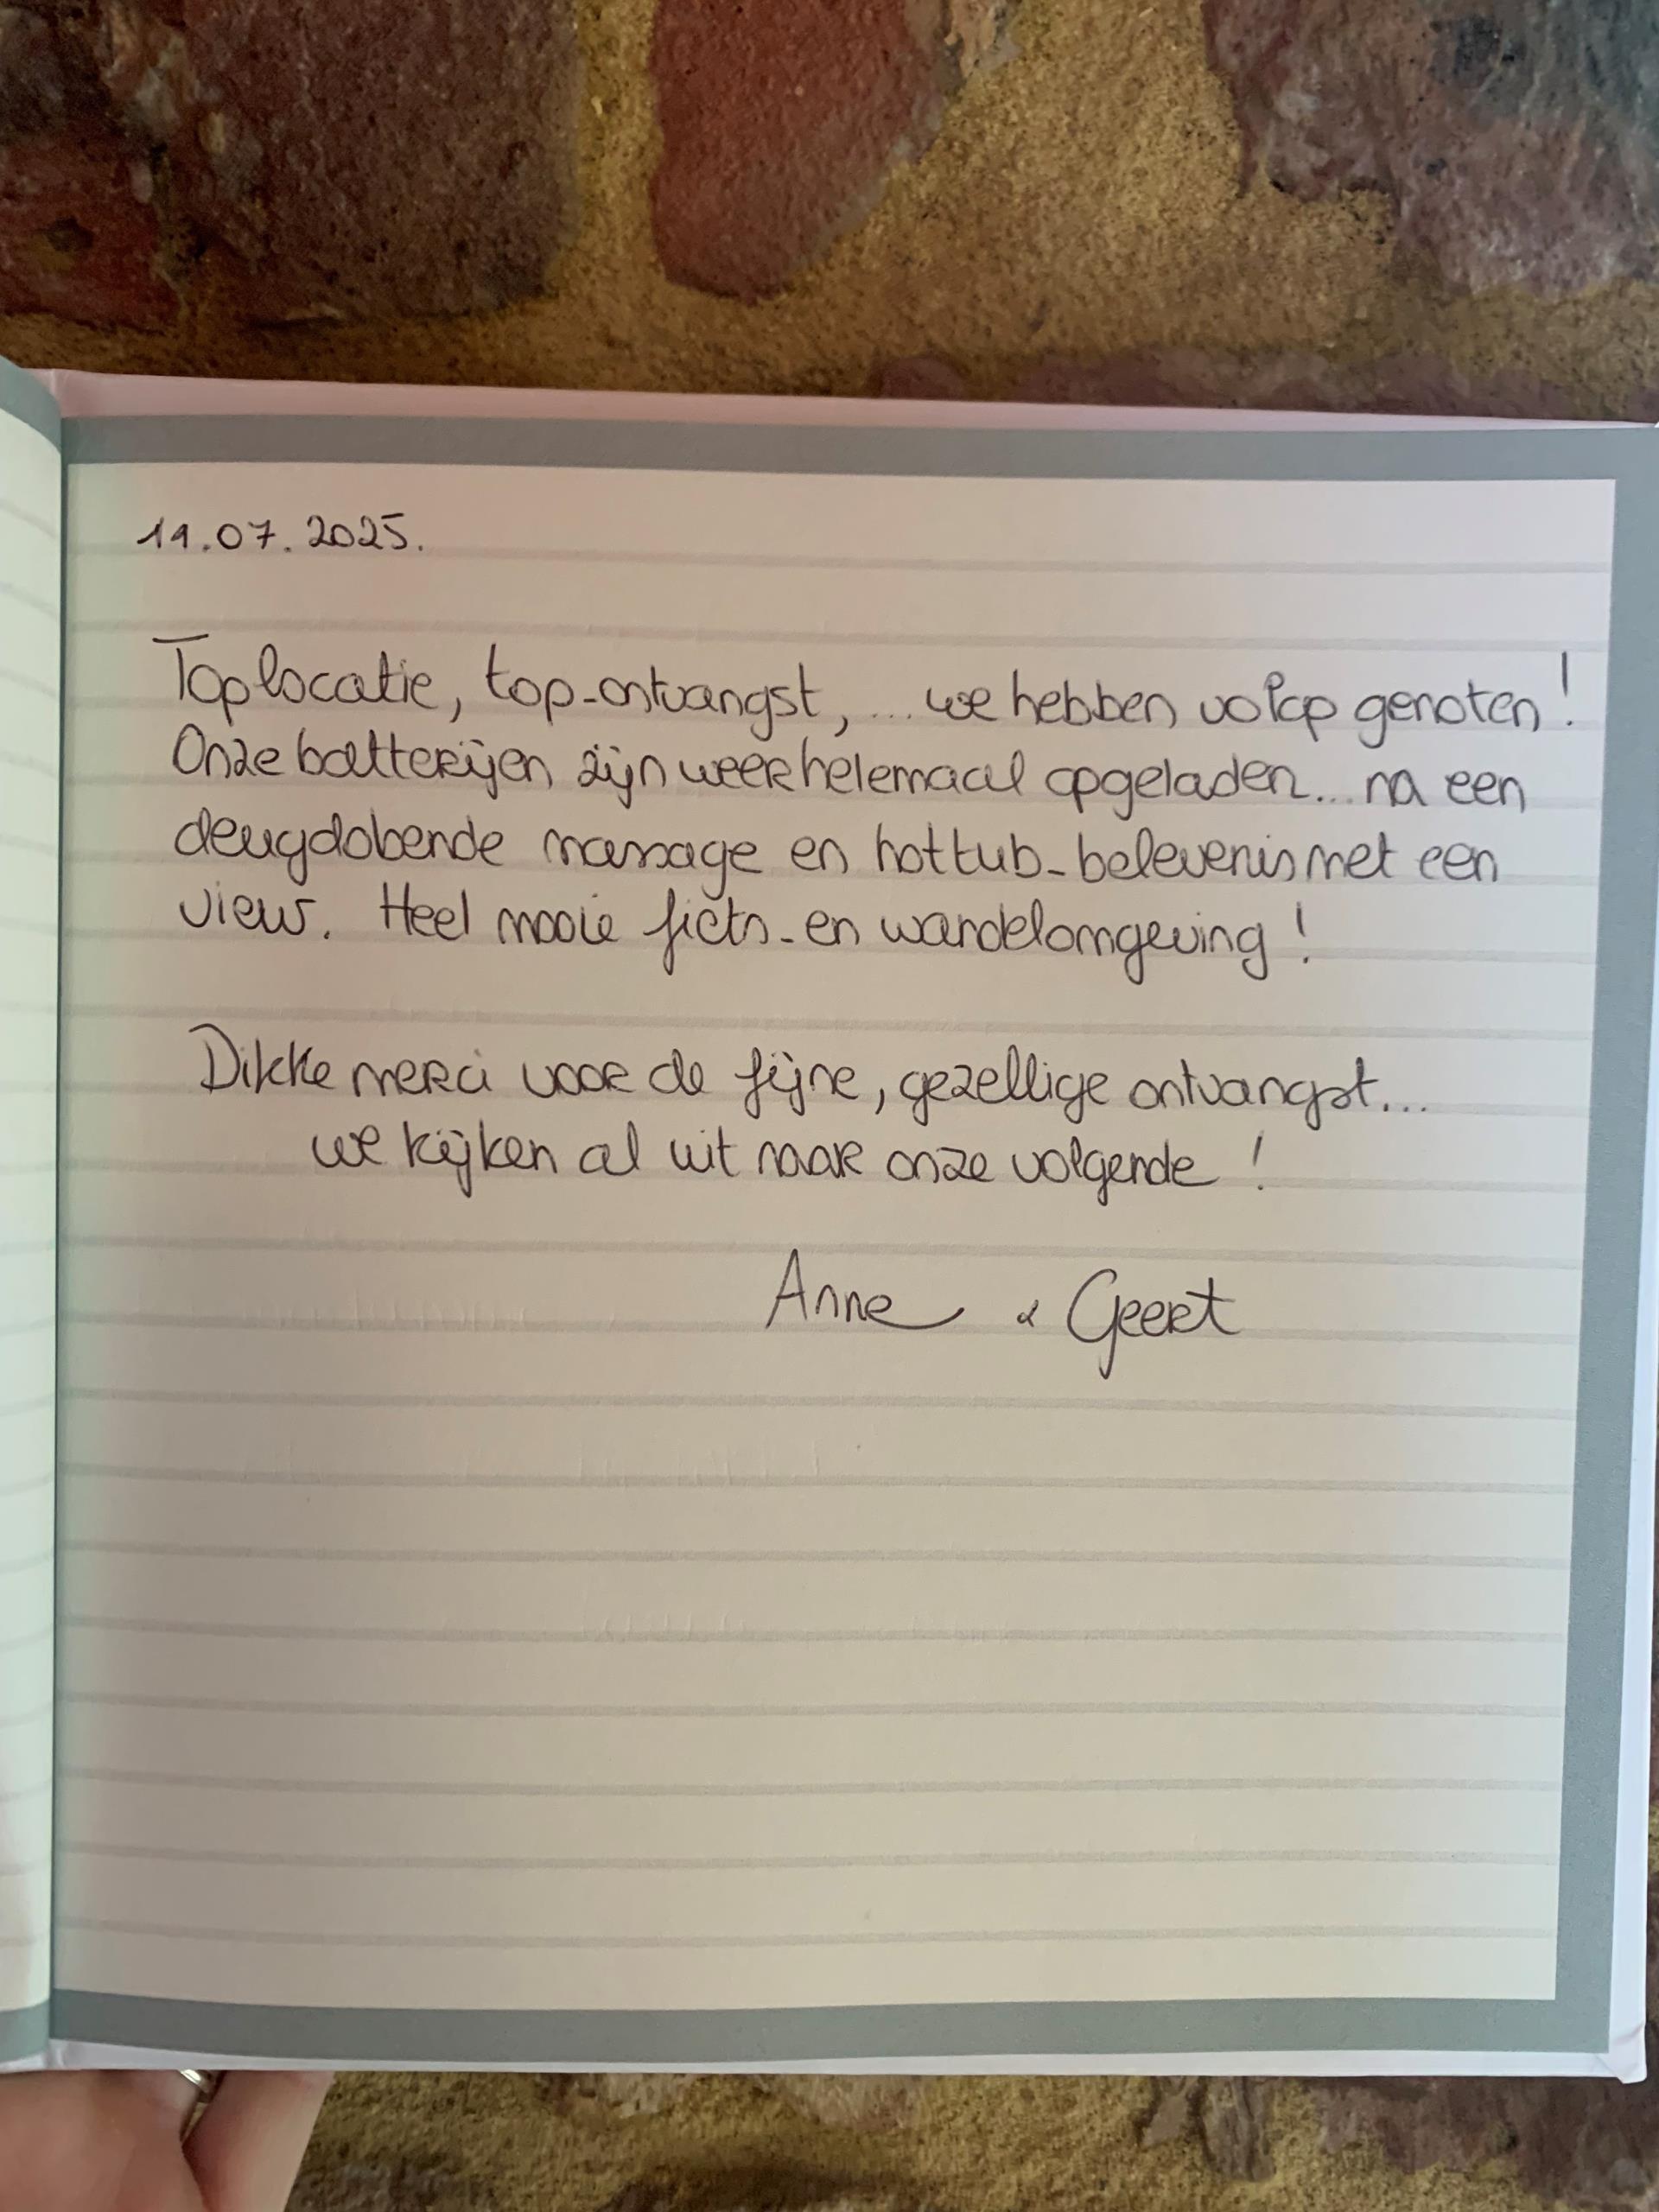 11.07.2025.
Toplocatie, top-ontvangst, ... we hebben volop genoten!
Onze batterijen zijn weer helemaal opgeladen... na een
deugddoende massage en hottub-belevenis met een
view. Heel mooie fiets- en wandelomgeving!
Dikke merci voor de fijne, gezellige ontvangst...
we kijken al uit naar onze volgende!
Anne & Geert